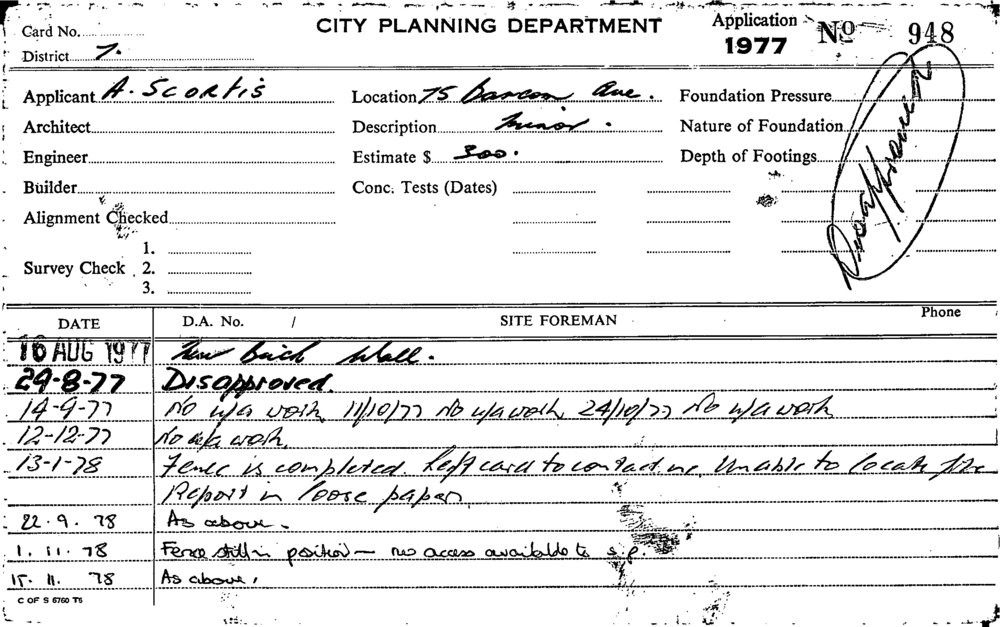 Card No.
CITY PLANNING DEPARTMENT
Application
1977
No 948
District 7.
Applicant A. SCORTIS
Location 75 Barcom Ave.
Foundation Pressure
Architect
Description Minor.
Nature of Foundation
Engineer
Estimate $ 300.
Depth of Footings
Builder
Conc. Tests (Dates)
Disapproved
Alignment Checked
Survey Check
1.
2.
3.
DATE
D.A. No. /
SITE FOREMAN
Phone
16 AUG 1977 New Brick Wall.
29-8-77 Disapproved.
14-9-77 No u/a work, 11/10/77 No u/a work, 24/10/77 No u/a work
12-12-77 No u/a work.
13-1-78 Fence is completed. Left card to contact me, Unable to locate file
Report in loose paper
22.9.78 As above.
1.11.78 Fence still in position — no access available to s.p.
15.11.78 As above.
C OF S 6760 T5